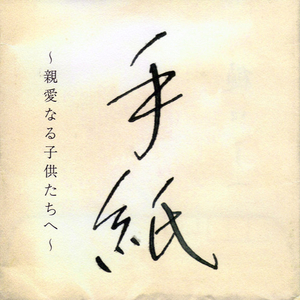 手紙
～親愛なる子供たちへ～